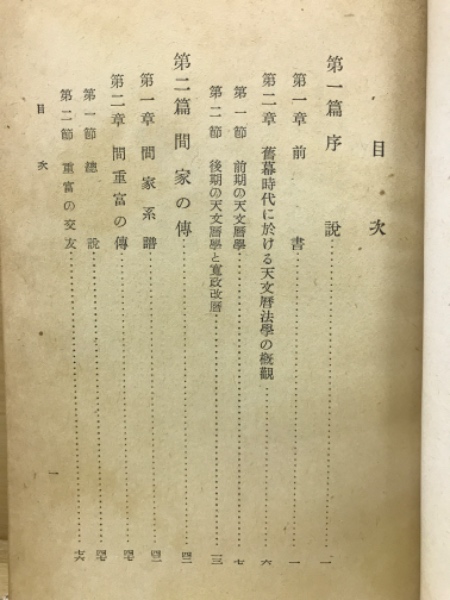 目次
第一篇 序説 一
第一章 前書 一
第二章 舊幕時代に於ける天文暦法學の概觀 六
第一節 前期の天文暦學 七
第二節 後期の天文暦學と寬政改暦 一三
第二篇 間家の傳
第一章 間家系譜
第二章 間重富の傳
第一節 總說
第二節 重富の交友 七六
目次 一